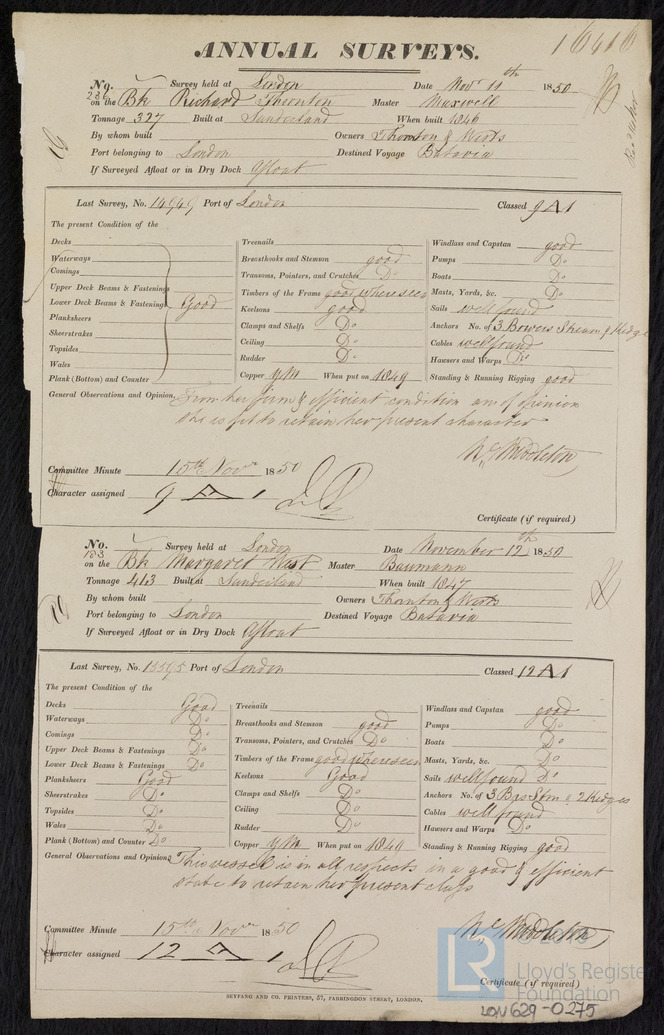 ANNUAL SURVEYS.
16416
No. 236 Survey held at London Date Novr 11th 1850
on the Bk Richard Thornton Master Maxwell
Tonnage 327 Built at Sunderland When built 1846
By whom built Owners Thornton & Wests
Port belonging to London Destined Voyage Batavia
If Surveyed Afloat or in Dry Dock Afloat
Last Survey, No. 14949 Port of London Classed 9 A 1
The present Condition of the
Decks
Waterways
Comings
Upper Deck Beams & Fastenings
Lower Deck Beams & Fastenings Good
Planksheers
Sheerstrakes
Topsides
Wales
Plank (Bottom) and Counter
Treenails
Breasthooks and Stemson good
Transoms, Pointers, and Crutches Do
Timbers of the Frame good where seen
Keelsons good
Clamps and Shelfs Do
Ceiling Do
Rudder Do
Copper y M When put on 1849
Windlass and Capstan good
Pumps Do
Boats Do
Masts, Yards, &c. Do
Sails well found
Anchors No. of 3 Bowers Stream & Kedge
Cables well found
Hawsers and Warps Do
Standing & Running Rigging good
General Observations and Opinion, From her firm & efficient condition am of opinion
she is fit to retain her present character
Wc Middleton
Committee Minute 15th Novr 1850
Character assigned 9 A 1
Certificate (if required)
No. 183 Survey held at London Date November 12th 1850
on the Bk Margaret West Master Baumann
Tonnage 413 Built at Sunderland When built 1847
By whom built Owners Thornton & Wests
Port belonging to London Destined Voyage Batavia
If Surveyed Afloat or in Dry Dock Afloat
Last Survey, No. 13595 Port of London Classed 12 A 1
The present Condition of the
Decks Good
Waterways Do
Comings Do
Upper Deck Beams & Fastenings Do
Lower Deck Beams & Fastenings Do
Planksheers Good
Sheerstrakes Do
Topsides Do
Wales Do
Plank (Bottom) and Counter Do
Treenails
Breasthooks and Stemson good
Transoms, Pointers, and Crutches Do
Timbers of the Frame good where seen
Keelsons Good
Clamps and Shelfs Do
Ceiling Do
Rudder Do
Copper y M When put on
Windlass and Capstan good
Pumps Do
Boats Do
Masts, Yards, &c. Do
Sails well found Do
Anchors No. of 3 Brs Stm & 2 Kedges
Cables well found
Hawsers and Warps Do
Standing & Running Rigging good
General Observations and Opinion, This vessel is in all respects in a good & efficient
state to retain her present class
Wc Middleton
Committee Minute 15th Novr 1850
Character assigned 12 A 1
Certificate (if required)
SEYFANG AND CO. PRINTERS, 57, FARRINGDON STREET, LONDON.
LR
Lloyd's Register
Foundation
LON 629-0275